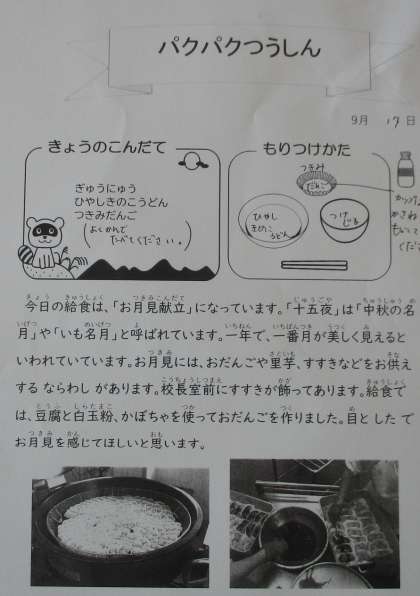 パクパクつうしん
9月 19日
きょうのこんだて
ぎゅうにゅう
ひやしきのこうどん
つきみだんご
(よくかんで
たべてください。)
もりつけかた
つきみ
だんご
ひやし
きのこ
うどん
つけ
じる
今日の給食は、「お月見献立」になっています。「十五夜」は「中秋の名
月」や「いも名月」と呼ばれています。一年で、一番月が美しく見えると
いわれていています。お月見には、おだんごや里芋、すすきなどをお供え
する ならわし があります。校長室前にすすきが飾ってあります。給食で
は、豆腐と白玉粉、かぼちゃを使っておだんごを作りました。目と した で
お月見を感じてほしいと思います。